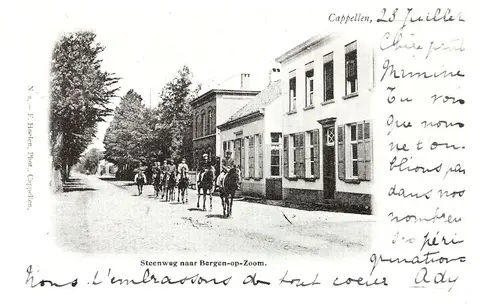 Cappellen, 23 Juillet
Chère petite
Mimine
Tu vois
que nous
ne t'ou-
blions pas
dans nos
nombreu
ses péri
grinations
Nous t'embrassons de tout coeur Ady
N 2. — F. Hoelen, Phot., Cappellen.
Steenweg naar Bergen-op-Zoom.